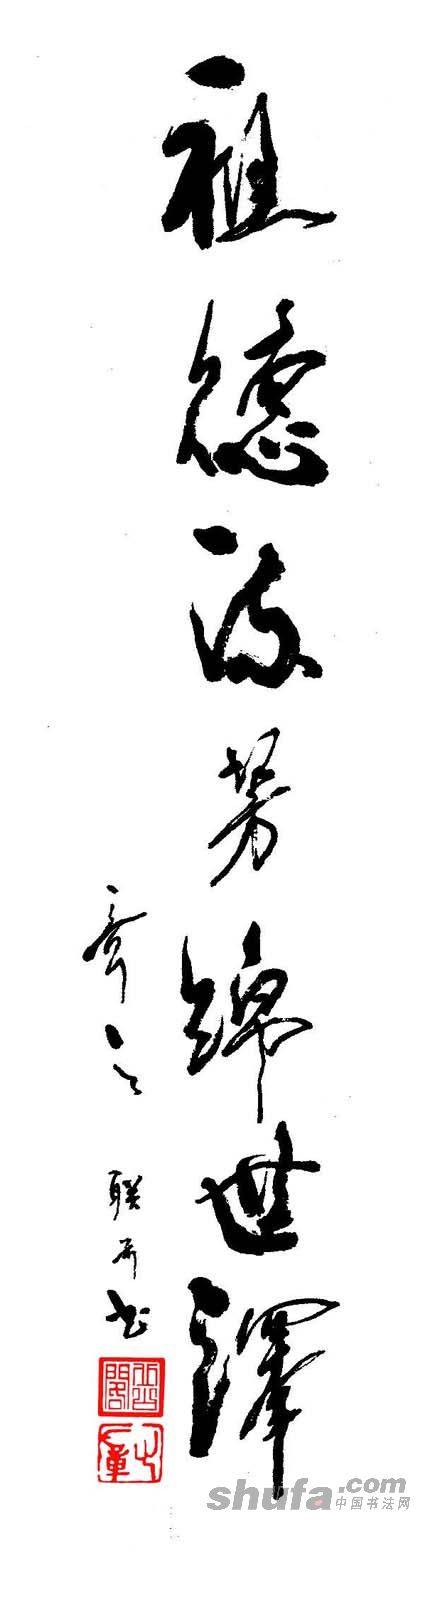 祖德流芳綿世澤
联并书
shufa.com
中国书法网